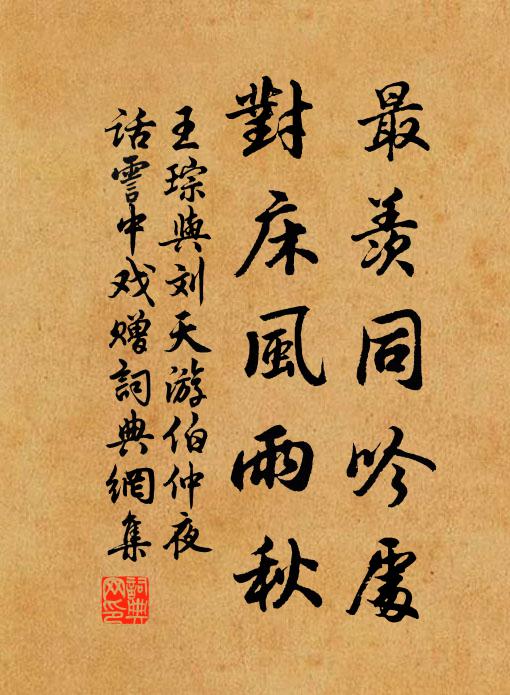 最羨同吟處
對床風雨秋
王琮與刘天游伯仲夜
话霅中戏赠詞典網集
詞典
网印